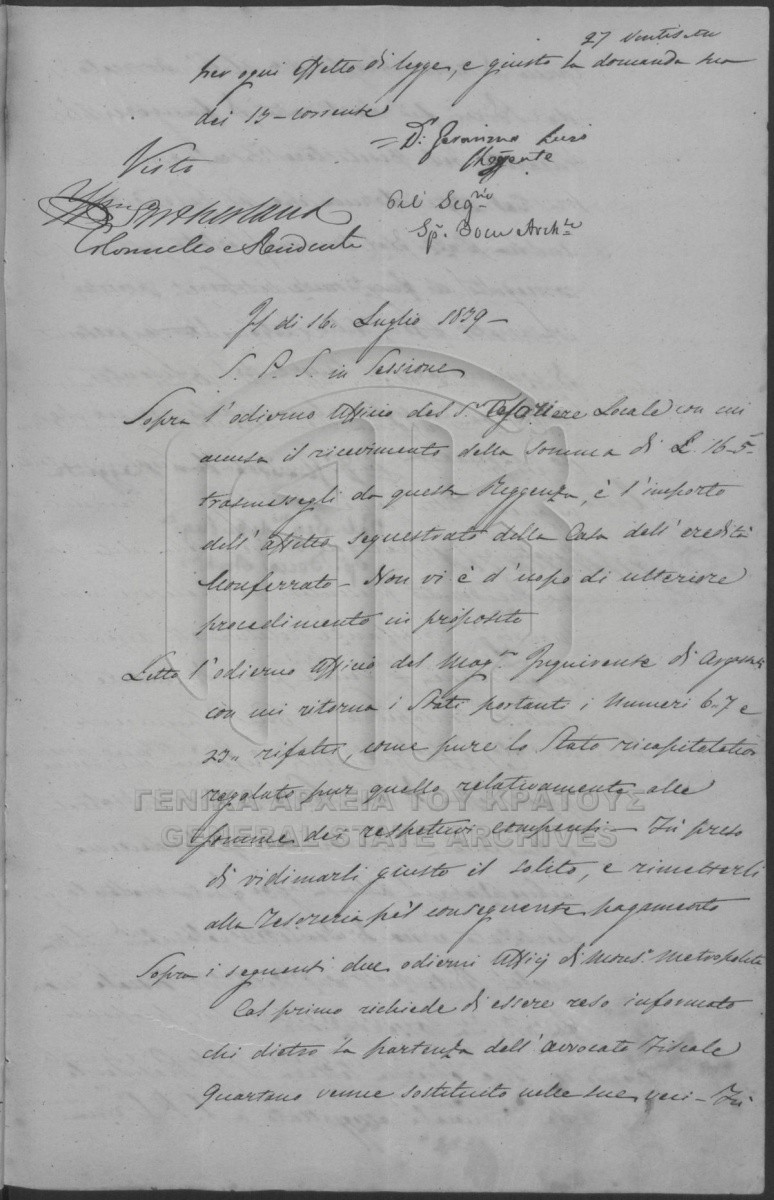 27 ventisette
per ogni effetto di legge, e giusto la domanda sua
dei 15 corrente
= Dr. Geronimo
Reggente
Visto
Sutherland
Colonnello e Residente
Pel Segrio
Arche
Il di 16. Luglio 1839 –
S. P. S. in Sessione
Sopra l'odierno Officio del Sr. Tesoriere Locale con cui
accusa il ricevimento della somma di L. 16-5-
trasmessegli da questa Reggenza, è l'importo
dell'affitto sequestrato della Casa dell'eredità
Monferrato – Non vi è d'uopo di ulteriore
procedimento in proposito
Letto l'odierno Officio del Magto. Inquirente di Argostoli
con cui ritorna i Stati portanti i Numeri 6-7 e
23,, rifatti, come pure lo Stato ricapitolativo
regolato pur quello relativamente alle
somme dei respettivi compensi – Fù preso
di vidimarli giusto il solito, e rimetterli
alla Tesoreria pel conseguente pagamento
Sopra i seguenti due odierni Officij di Monsr. Metropolita
Col primo richiede di essere reso informato
chi dietro la partenza dell'avvocato Fiscale
Quartano venne sostituito nelle sue veci – Fù
ΓΕΝΙΚΑ ΑΡΧΕΙΑ ΤΟΥ ΚΡΑΤΟΥΣ
GENERAL STATE ARCHIVES